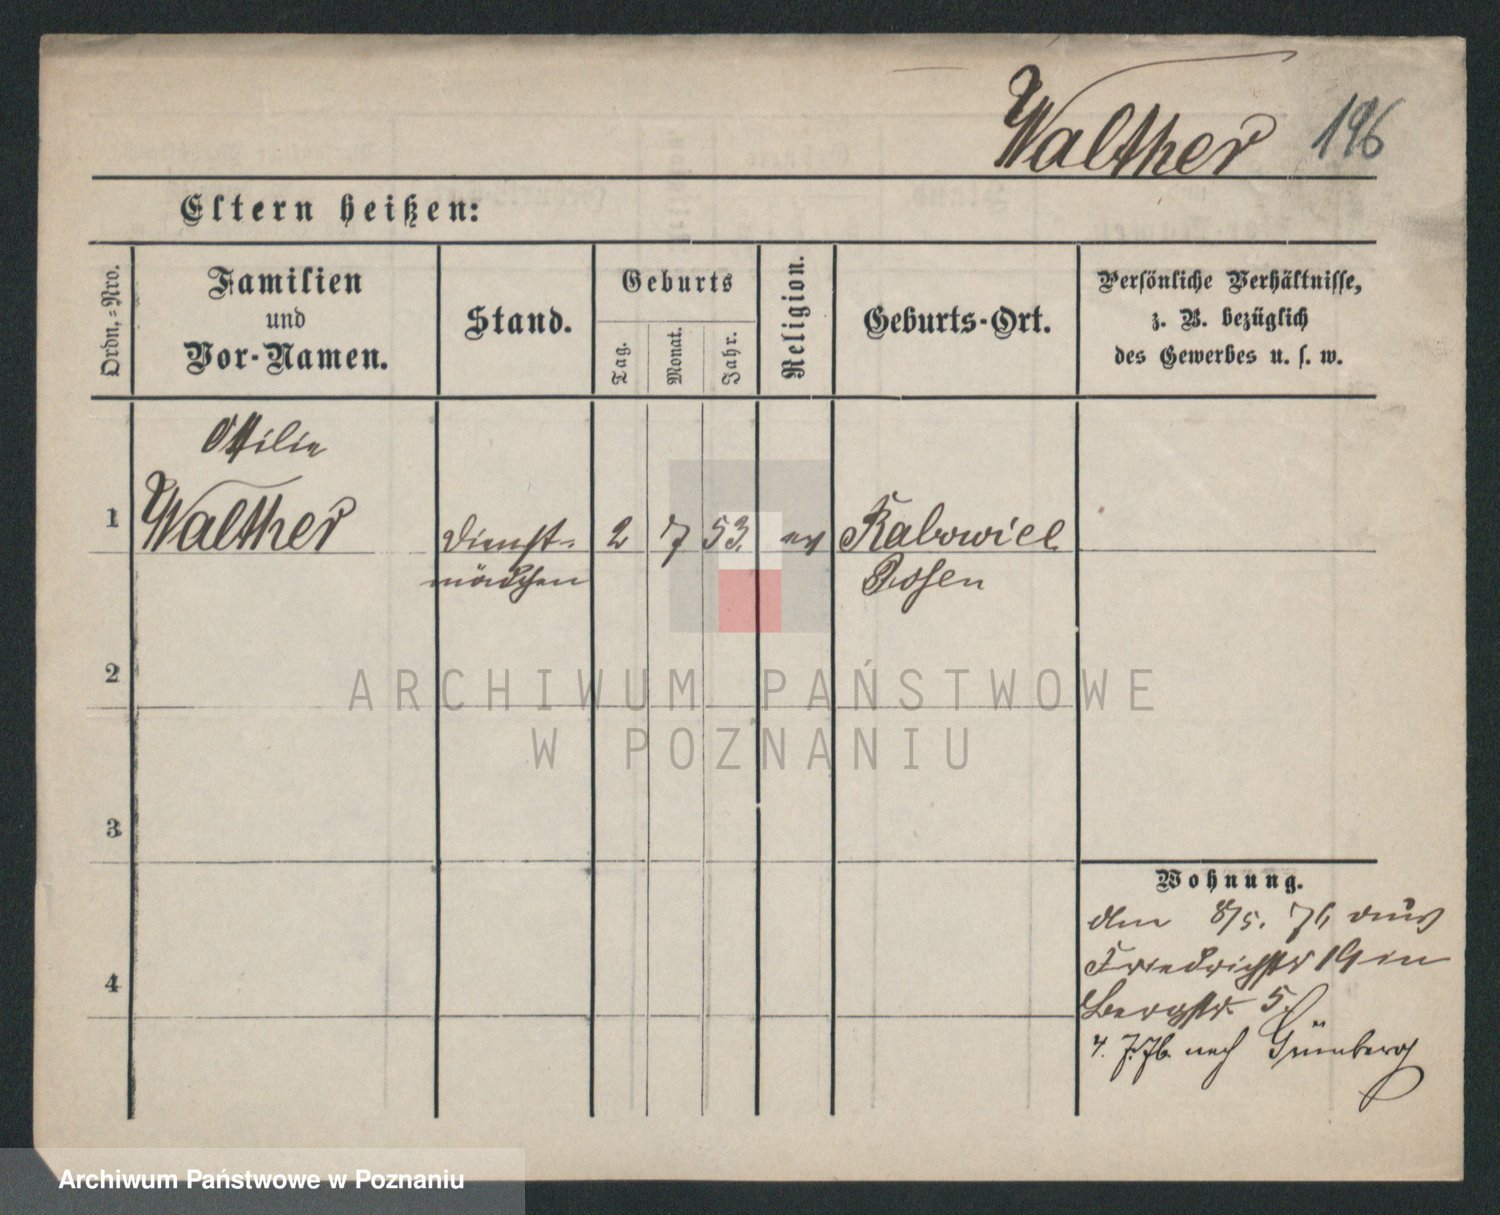 Walther 196
Eltern heißen:
Ordn.-Nro.
Familien
und
Vor-Namen.
Stand.
Geburts
Tag.
Monat.
Jahr.
Religion.
Geburts-Ort.
Persönliche Verhältnisse,
z. B. bezüglich
des Gewerbes u. s. w.
Ottilie
1 Walther Dienst- 2 7 53. ev
mädchen Posen
2
ARCHIWUM PAŃSTWOWE
W POZNANIU
3
Wohnung.
den 8/5. 76 aus
Friedrichstr 19 in
4
Bergstr. 5.
4. 7. 76. nach Grünberg
Archiwum Państwowe w Poznaniu